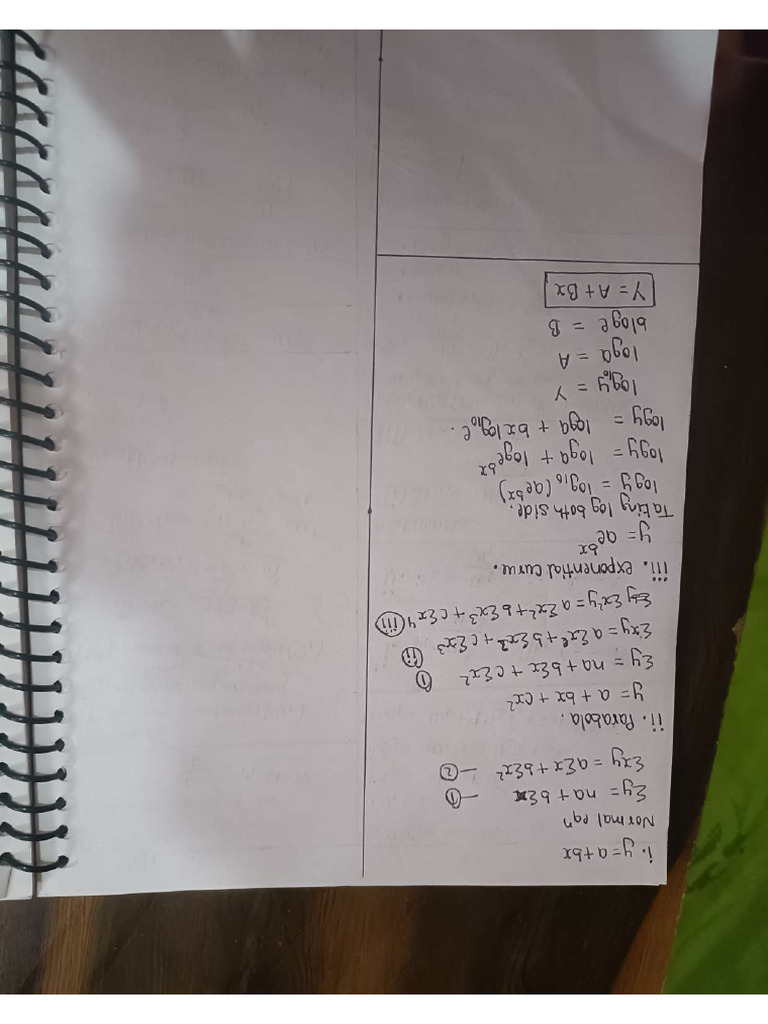 i. y = a + bx
Normal eqⁿ
Σy = na + bΣx —①
Σxy = aΣx + bΣx² —②
ii. Parabola.
y = a + bx + cx²
Σy = na + bΣx + cΣx² ①
Σxy = aΣx + bΣx² + cΣx³ ⓘⓘ
Σx²y = aΣx² + bΣx³ + cΣx⁴ (iii)
iii. exponential curve.
y = ae^bx
Taking log both side.
logy = log₁₀(ae^bx)
logy = loga + loge^bx
logy = loga + bx log₁₀e.
log₁₀y = Y
loga = A
bloge = B
Y = A + Bx